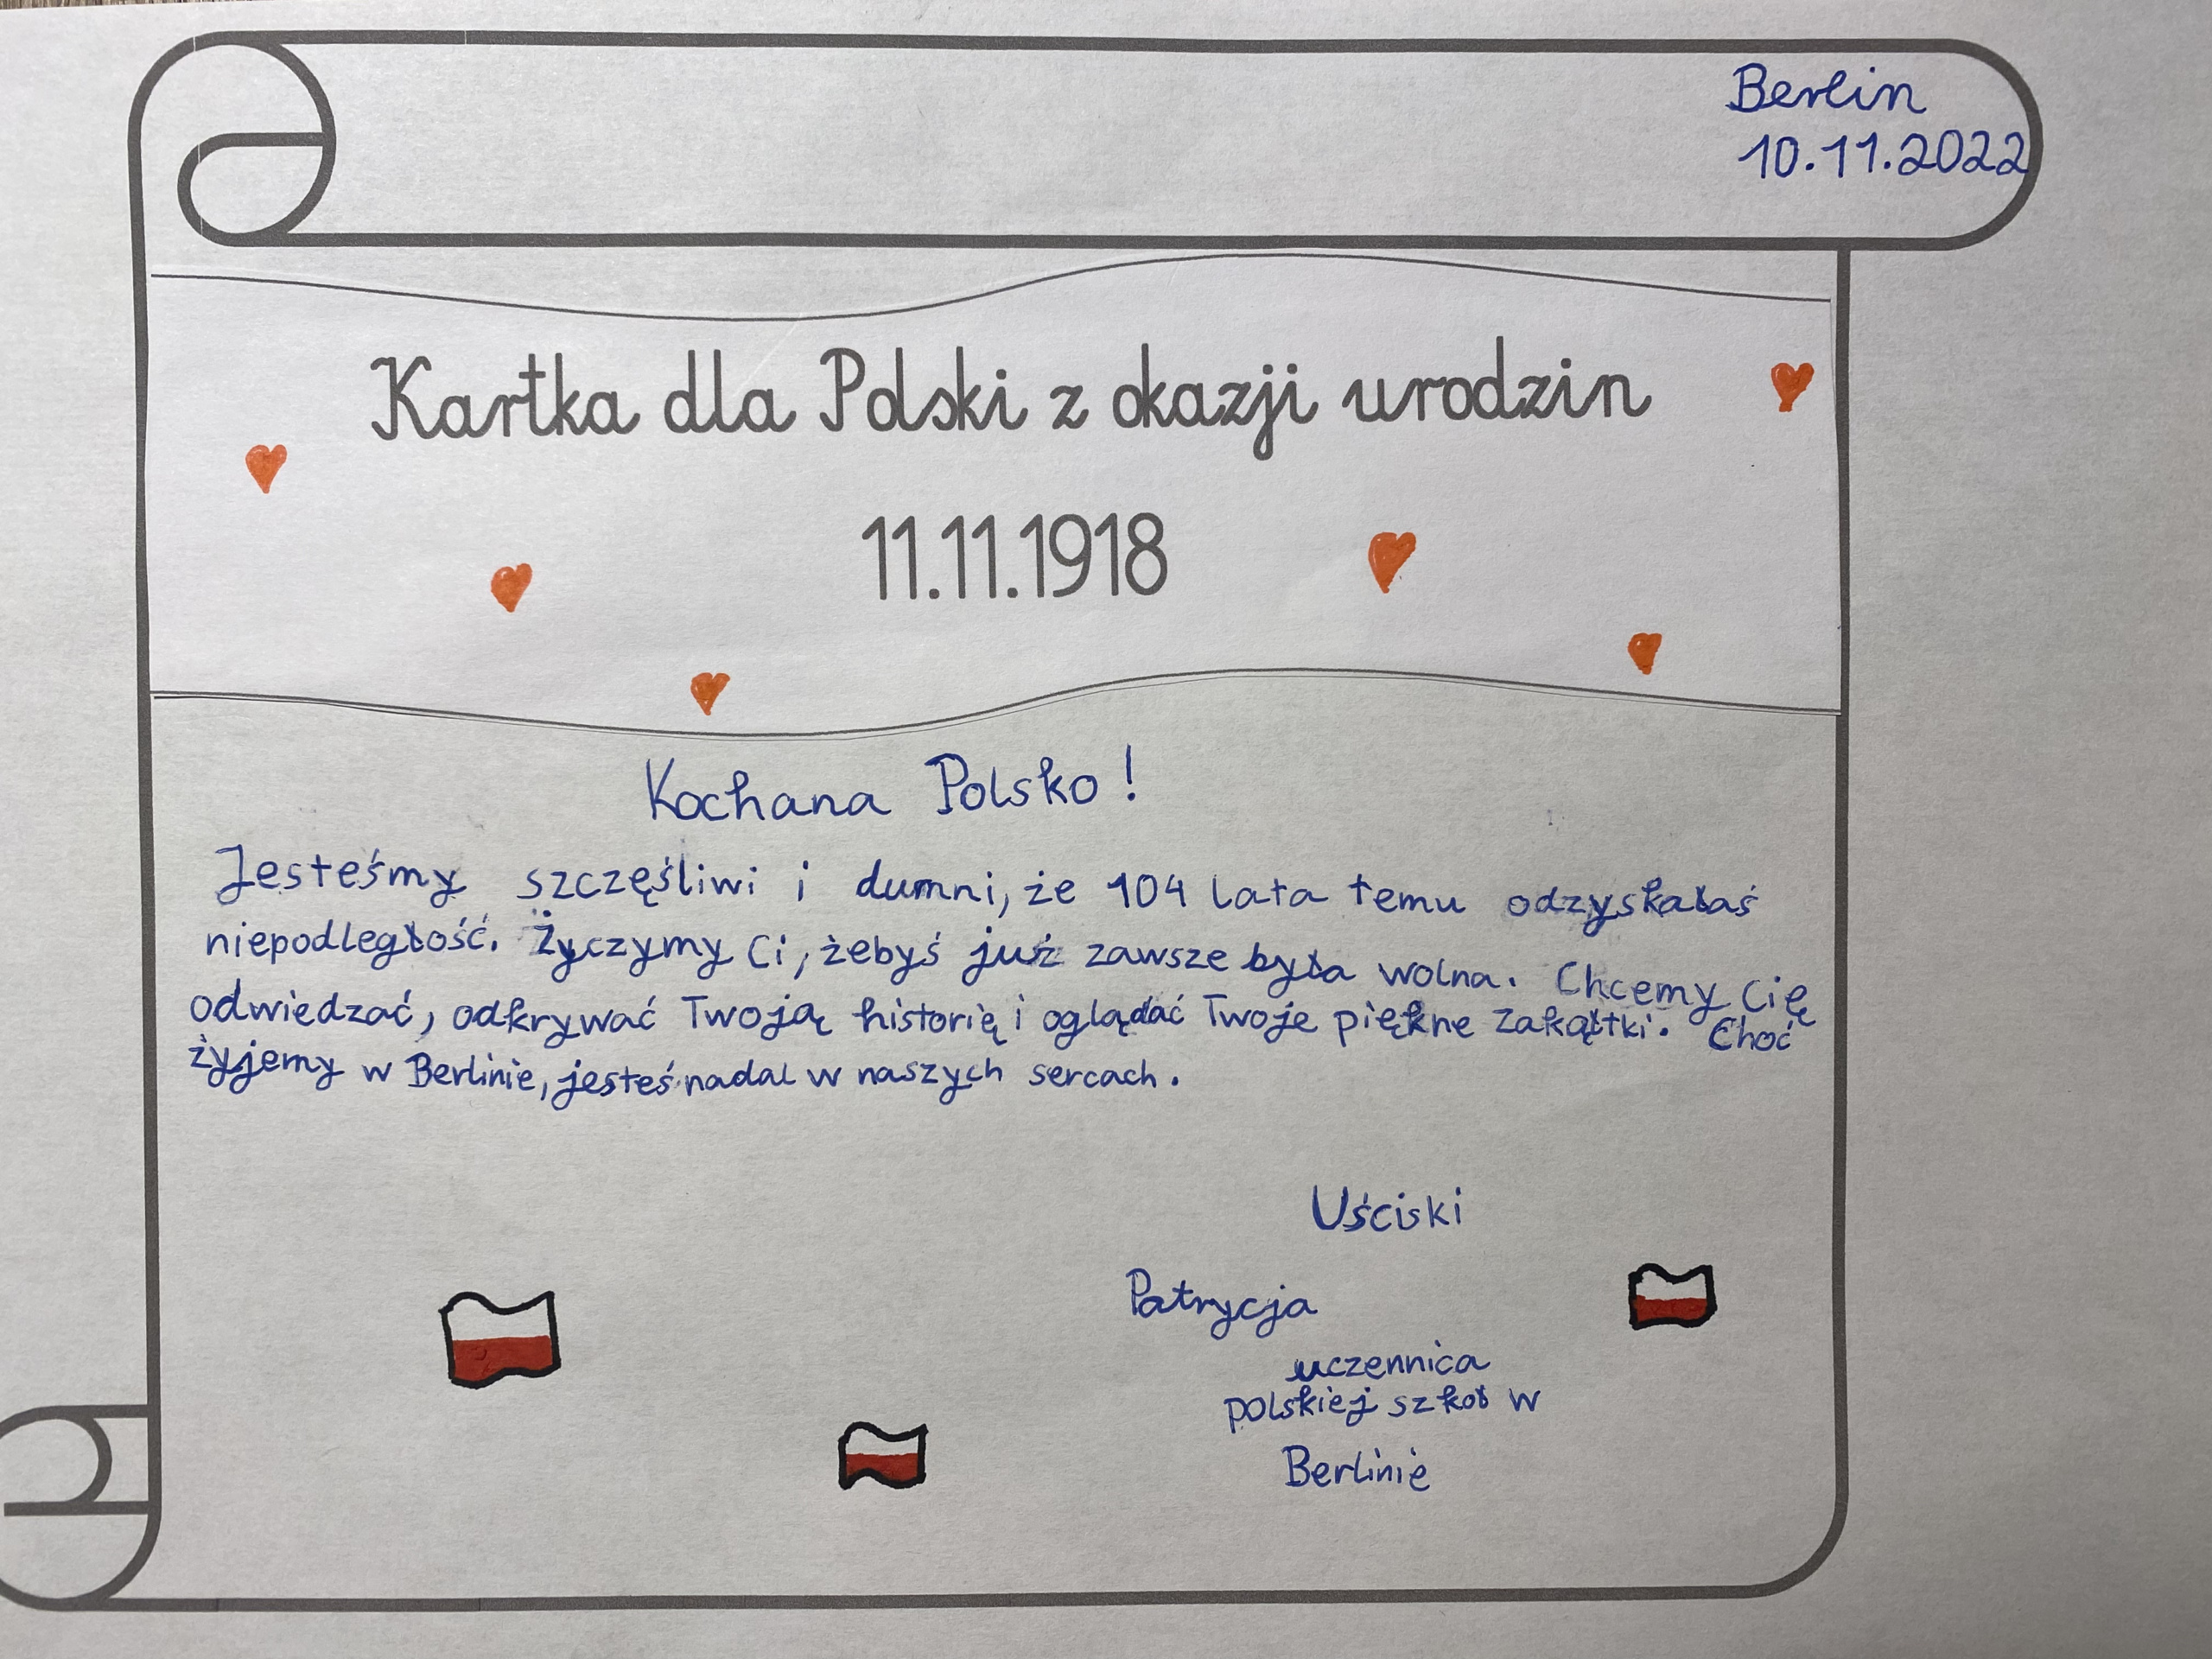 Berlin
10.11.2022
Kartka dla Polski z okazji urodzin
11.11.1918
Kochana Polsko!
Jesteśmy szczęśliwi i dumni, że 104 lata temu odzyskałaś
niepodległość. Życzymy Ci, żebyś już zawsze była wolna. Chcemy Cię
odwiedzać, odkrywać Twoją historię i oglądać Twoje piękne zakątki. Choć
żyjemy w Berlinie, jesteś nadal w naszych sercach.
Uściski
Patrycja
uczennica
polskiej szkoł w
Berlinie